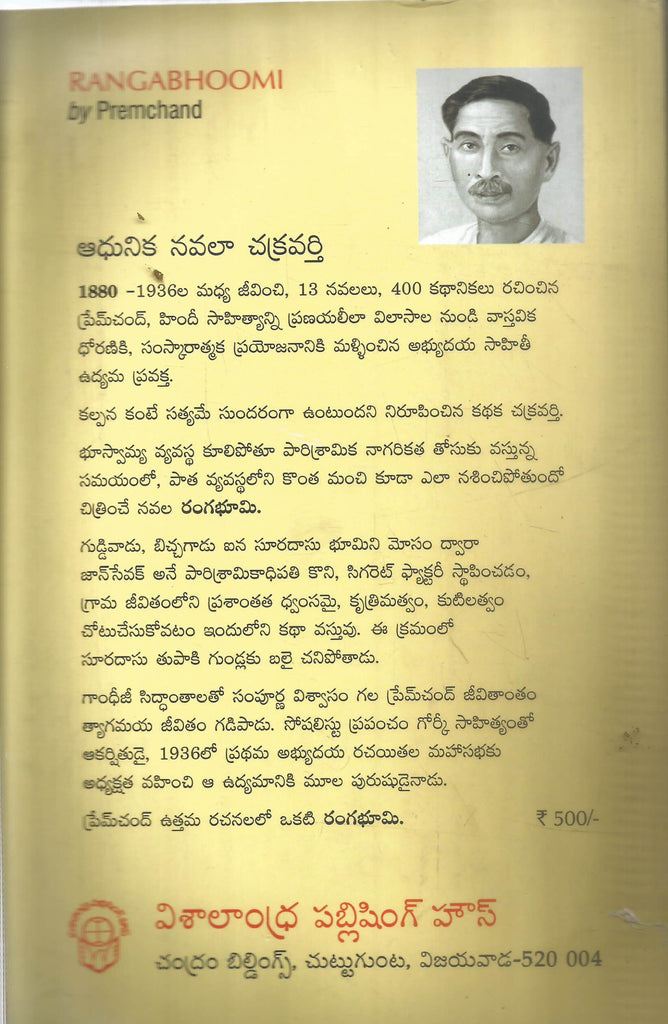 RANGABHOOMI
by Premchand
ఆధునిక నవలా చక్రవర్తి
1880 -1936ల మధ్య జీవించి, 13 నవలలు, 400 కథానికలు రచించిన
ప్రేమ్‌చంద్, హిందీ సాహిత్యాన్ని ప్రణయలీలా విలాసాల నుండి వాస్తవిక
ధోరణికి, సంస్కారాత్మక ప్రయోజనానికి మళ్ళించిన అభ్యుదయ సాహితీ
ఉద్యమ ప్రవక్త.
కల్పన కంటే సత్యమే సుందరంగా ఉంటుందని నిరూపించిన కథక చక్రవర్తి.
భూస్వామ్య వ్యవస్థ కూలిపోతూ పారిశ్రామిక నాగరికత తోసుకు వస్తున్న
సమయంలో, పాత వ్యవస్థలోని కొంత మంచి కూడా ఎలా నశించిపోతుందో
చిత్రించే నవల రంగభూమి.
గుడ్డివాడు, బిచ్చగాడు ఐన సూరదాసు భూమిని మోసం ద్వారా
జాన్‌సేవక్ అనే పారిశ్రామికాధిపతి కొని, సిగరెట్ ఫ్యాక్టరీ స్థాపించడం,
గ్రామ జీవితంలోని ప్రశాంతత ధ్వంసమై, కృత్రిమత్వం, కుటిలత్వం
చోటుచేసుకోవటం ఇందులోని కథా వస్తువు. ఈ క్రమంలో
సూరదాసు తుపాకి గుండ్లకు బలై చనిపోతాడు.
గాంధీజీ సిద్ధాంతాలతో సంపూర్ణ విశ్వాసం గల ప్రేమ్‌చంద్ జీవితాంతం
త్యాగమయ జీవితం గడిపాడు. సోషలిస్టు ప్రపంచం గోర్కీ సాహిత్యంతో
ఆకర్షితుడై, 1936లో ప్రథమ అభ్యుదయ రచయితల మహాసభకు
అధ్యక్షత వహించి ఆ ఉద్యమానికి మూల పురుషుడైనాడు.
ప్రేమ్‌చంద్ ఉత్తమ రచనలలో ఒకటి రంగభూమి.
₹ 500/-
విశాలాంధ్ర పబ్లిషింగ్ హౌస్
చంద్రం బిల్డింగ్స్, చుట్టుగుంట, విజయవాడ-520 004